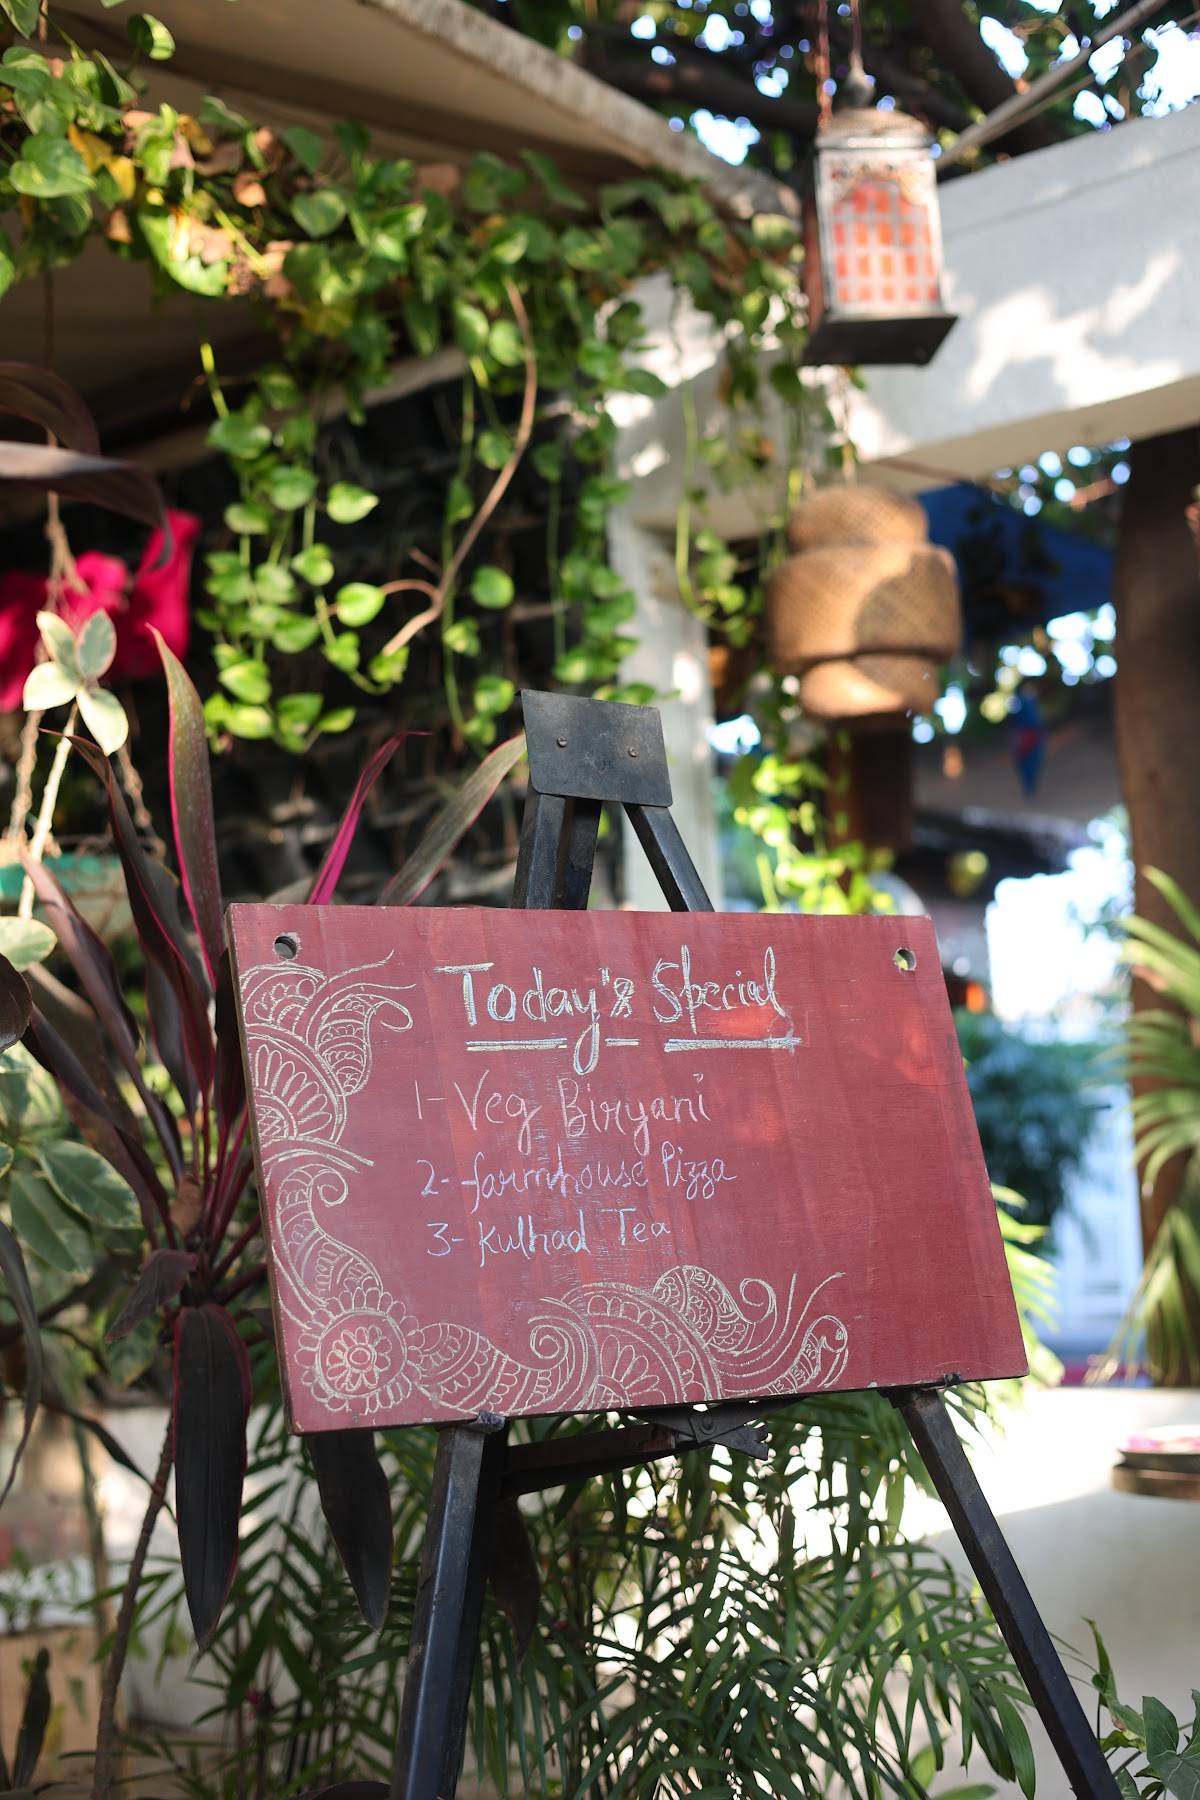 Today's Special
1- Veg Biryani
2- farmhouse Pizza
3- Kulhad Tea